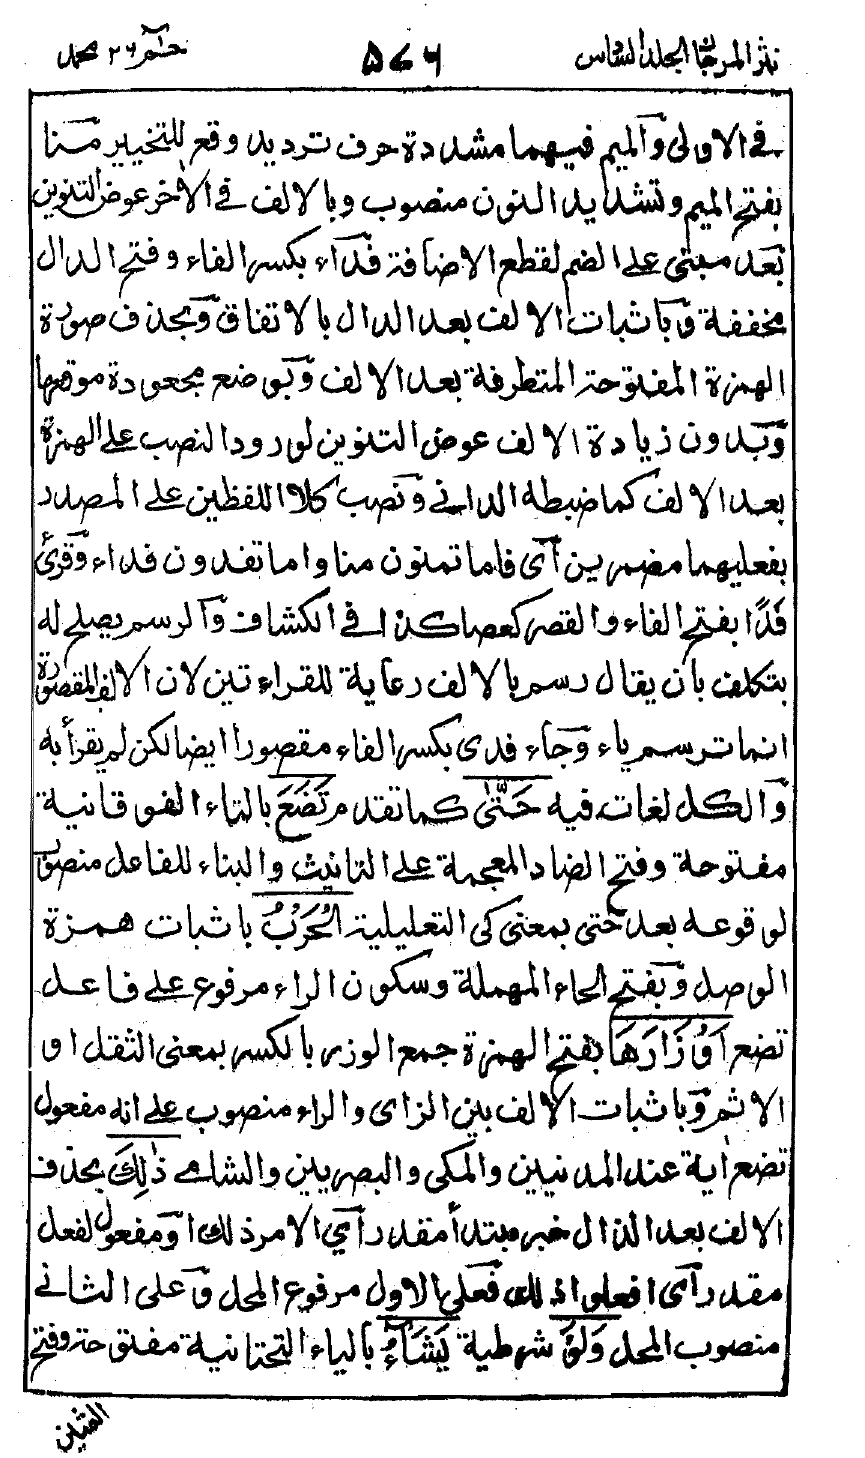 نثر المرجان الجلد السادس ٥٧٦ حٰمٓ ٢٦ محمد
في الاولى والميم فيهما مشددة حرف ترديد وقع للتخيير منا
بفتح الميم وتشديد النون منصوب وبالالف في الاخر عوض التنوين
بعد مبنى على الضم لقطع الاضافة فداء بكسر الفاء وفتح الدال
مخففة وباثبات الالف بعد الدال بالاتفاق وبحذف صورة
الهمزة المفتوحة المتطرفة بعد الالف وبوضع مجعودة موقعها
وبدون زيادة الالف عوض التنوين لورود النصب على الهمزة
بعد الالف كما ضبطه الداني ونصب كلا اللفظين على المصدر
بفعليهما مضمرين اى فاما تمنون منا واما تفدون فداء وقرئ
فدًا بفتح الفاء والقصر كعصا كذا في الكشاف والرسم يصلح له
بتكلف بان يقال رسم بالالف رعاية للقراءتين لان الالف المقصورة
انما ترسم ياء وجاء فدى بكسر الفاء مقصورا ايضا لكن لم يقرأ به
والكل لغات فيه حَتّٰى كما تقدم تَضَعَ بالتاء الفوقانية
مفتوحة وفتح الضاد المعجمة على التانيث والبناء للفاعل منصوب
لوقوعه بعد حتى بمعنى كى التعليلية الْحَرْبُ باثبات همزة
الوصل وبفتح الحاء المهملة وسكون الراء مرفوع على فاعل
تضع اَوْزَارَهَا بفتح الهمزة جمع الوزر بالكسر بمعنى الثقل او
الاثم وباثبات الالف بين الزاى والراء منصوب على انه مفعول
تضع اية عند المدنيين والمكى والبصريين والشامي ذٰلِكَ بحذف
الالف بعد الذال خبر مبتدأ مقدر أي الامر ذلك او مفعول لفعل
مقدر أى افعلوا ذلك فعلى الاول مرفوع المحل وعلى الثاني
منصوب المحل وَلَوْ شرطية يَشَآءُ بالياء التحتانية مفتوحة وفتح
الشين